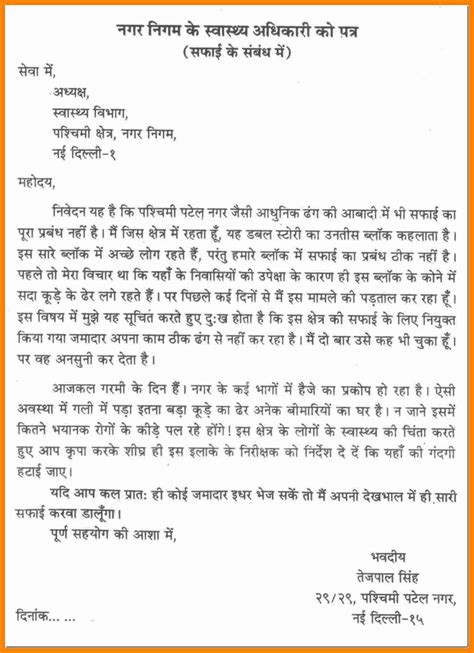 नगर निगम के स्वास्थ्य अधिकारी को पत्र
(सफाई के संबंध में)
सेवा में,
अध्यक्ष,
स्वास्थ्य विभाग,
पश्चिमी क्षेत्र, नगर निगम,
नई दिल्ली-१
महोदय,
निवेदन यह है कि पश्चिमी पटेल नगर जैसी आधुनिक ढंग की आबादी में भी सफाई का
पूरा प्रबंध नहीं है। मैं जिस क्षेत्र में रहता हूँ, यह डबल स्टोरी का उनतीस ब्लॉक कहलाता है।
इस सारे ब्लॉक में अच्छे लोग रहते हैं, परंतु हमारे ब्लॉक में सफाई का प्रबंध ठीक नहीं है।
पहले तो मेरा विचार था कि यहाँ के निवासियों की उपेक्षा के कारण ही इस ब्लॉक के कोने में
सदा कूड़े के ढेर लगे रहते हैं। पर पिछले कई दिनों से मैं इस मामले की पड़ताल कर रहा हूँ।
इस विषय में मुझे यह सूचित करते हुए दुःख होता है कि इस क्षेत्र की सफाई के लिए नियुक्त
किया गया जमादार अपना काम ठीक ढंग से नहीं कर रहा है। मैं दो बार उसे कह भी चुका हूँ।
पर वह अनसुनी कर देता है।
आजकल गरमी के दिन हैं। नगर के कई भागों में हैजे का प्रकोप हो रहा है। ऐसी
अवस्था में गली में पड़ा इतना बड़ा कूड़े का ढेर अनेक बीमारियों का घर है। न जाने इसमें
कितने भयानक रोगों के कीड़े पल रहे होंगे! इस क्षेत्र के लोगों के स्वास्थ्य की चिंता करते
हुए आप कृपा करके शीघ्र ही इस इलाके के निरीक्षक को निर्देश दे दें कि यहाँ की गंदगी
हटाई जाए।
यदि आप कल प्रातः ही कोई जमादार इधर भेज सकें तो मैं अपनी देखभाल में ही सारी
सफाई करवा डालूँगा।
पूर्ण सहयोग की आशा में,
भवदीय
तेजपाल सिंह
२९/२९, पश्चिमी पटेल नगर,
नई दिल्ली-१५
दिनांक... ...